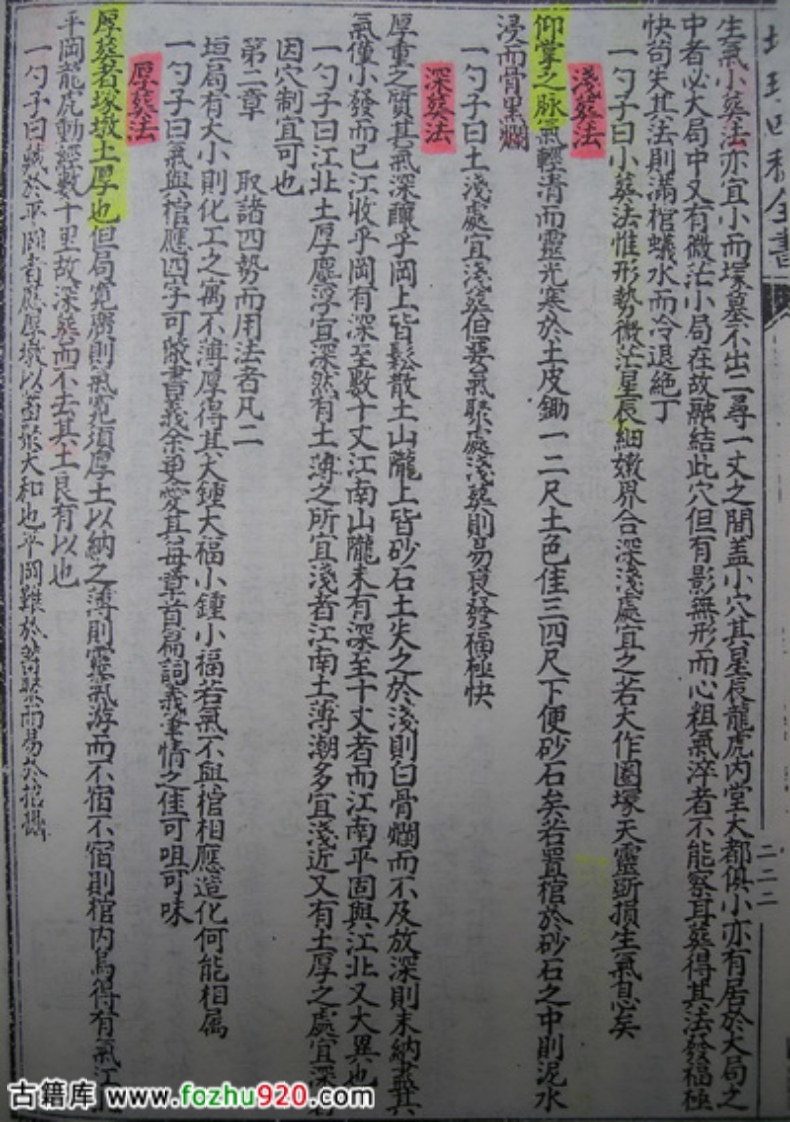 全書
生氣小葬法亦宜小而塚墓不出二尋一丈之間蓋小穴其星辰龍虎內堂大都俱小亦有居於大局之
中者必大局中又有微茫小局在故融結此穴但有影無形而心粗氣淬者不能察耳葬得其法發福極
快苟失其法則滿棺蟻水而冷退絶丁
一勺子曰小葬法惟形勢微茫星辰細嫩界合深淺處宜之若大作圈塚天靈斲損生氣息矣
淺葬法
仰掌之脉氣輕清而靈光寒於土皮鋤一二尺土色佳三四尺下便砂石矣若置棺於砂石之中則泥水
浸而骨黑爛
一勺子曰土淺處宜淺葬但要氣聚處淺葬則易良發福極快
深葬法
厚重之質其氣深釀乎岡上皆鬆散土山隴上皆砂石土失之於淺則白骨爛而不及放深則未納盡其
氣僅小發而已江收乎岡有深至數十丈江南山隴未有深至十丈者而江南平固與江北又大異也
一勺子曰江北土厚塵浮宜深然有土薄之所宜淺者江南土薄潮多宜淺近又有土厚之處宜深者
因穴制宜可也
第二章 取諸四勢而用法者凡二
垣局有大小則化工之寓不薄厚得其大鍾大福小鍾小福若氣不與棺相應造化何能相属
一勺子曰氣與棺應四字可敵書義余更愛其每章首篇詞義筆情之佳可咀可味
厚葬法
厚葬者塚墩土厚也但局寛廣則氣寛須厚土以納之薄則靈氣游而不宿不宿則棺內烏得有氣江北
平岡龍虎動經數十里故深葬而不去其土良有以也
一勺子曰藏於平岡者應厚墩以蓄於大和也平岡難於 聚而易於
二二二
古籍库 www.fozhu920.com